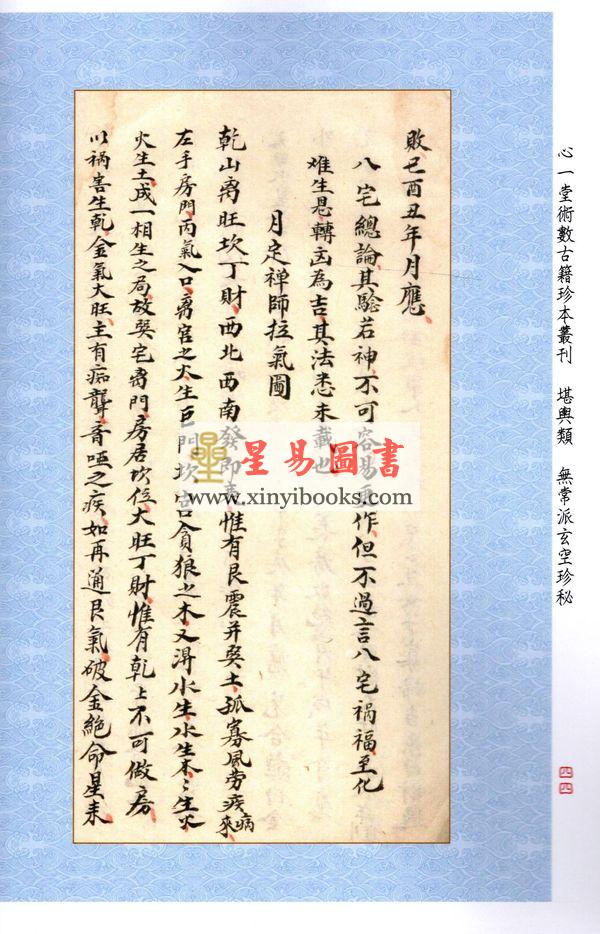 心一堂術數古籍珍本叢刊 堪輿類 無常派玄空珍秘
敗巳酉丑年月應
八宅總論其驗若神不可容易更作但不過言八宅禍福至化
难生恩轉凶為吉其法悉未載也
月定禅師拉氣圖
乾山离旺坎丁財西北西南發即 惟有艮震并巽土孤寡風劳疾病來
左手房門丙氣入口离宮之火生 門坎宮貪狼之木又得水生水生木〻生火
火生土成一相生之局故巽宅离門房居坎位大旺丁財惟有乾上不可做房
以禍害生乾金氣大旺主有痴聾音啞之疾如再通艮氣破金絕命星来
星易圖書
www.xinyibooks.com
四四